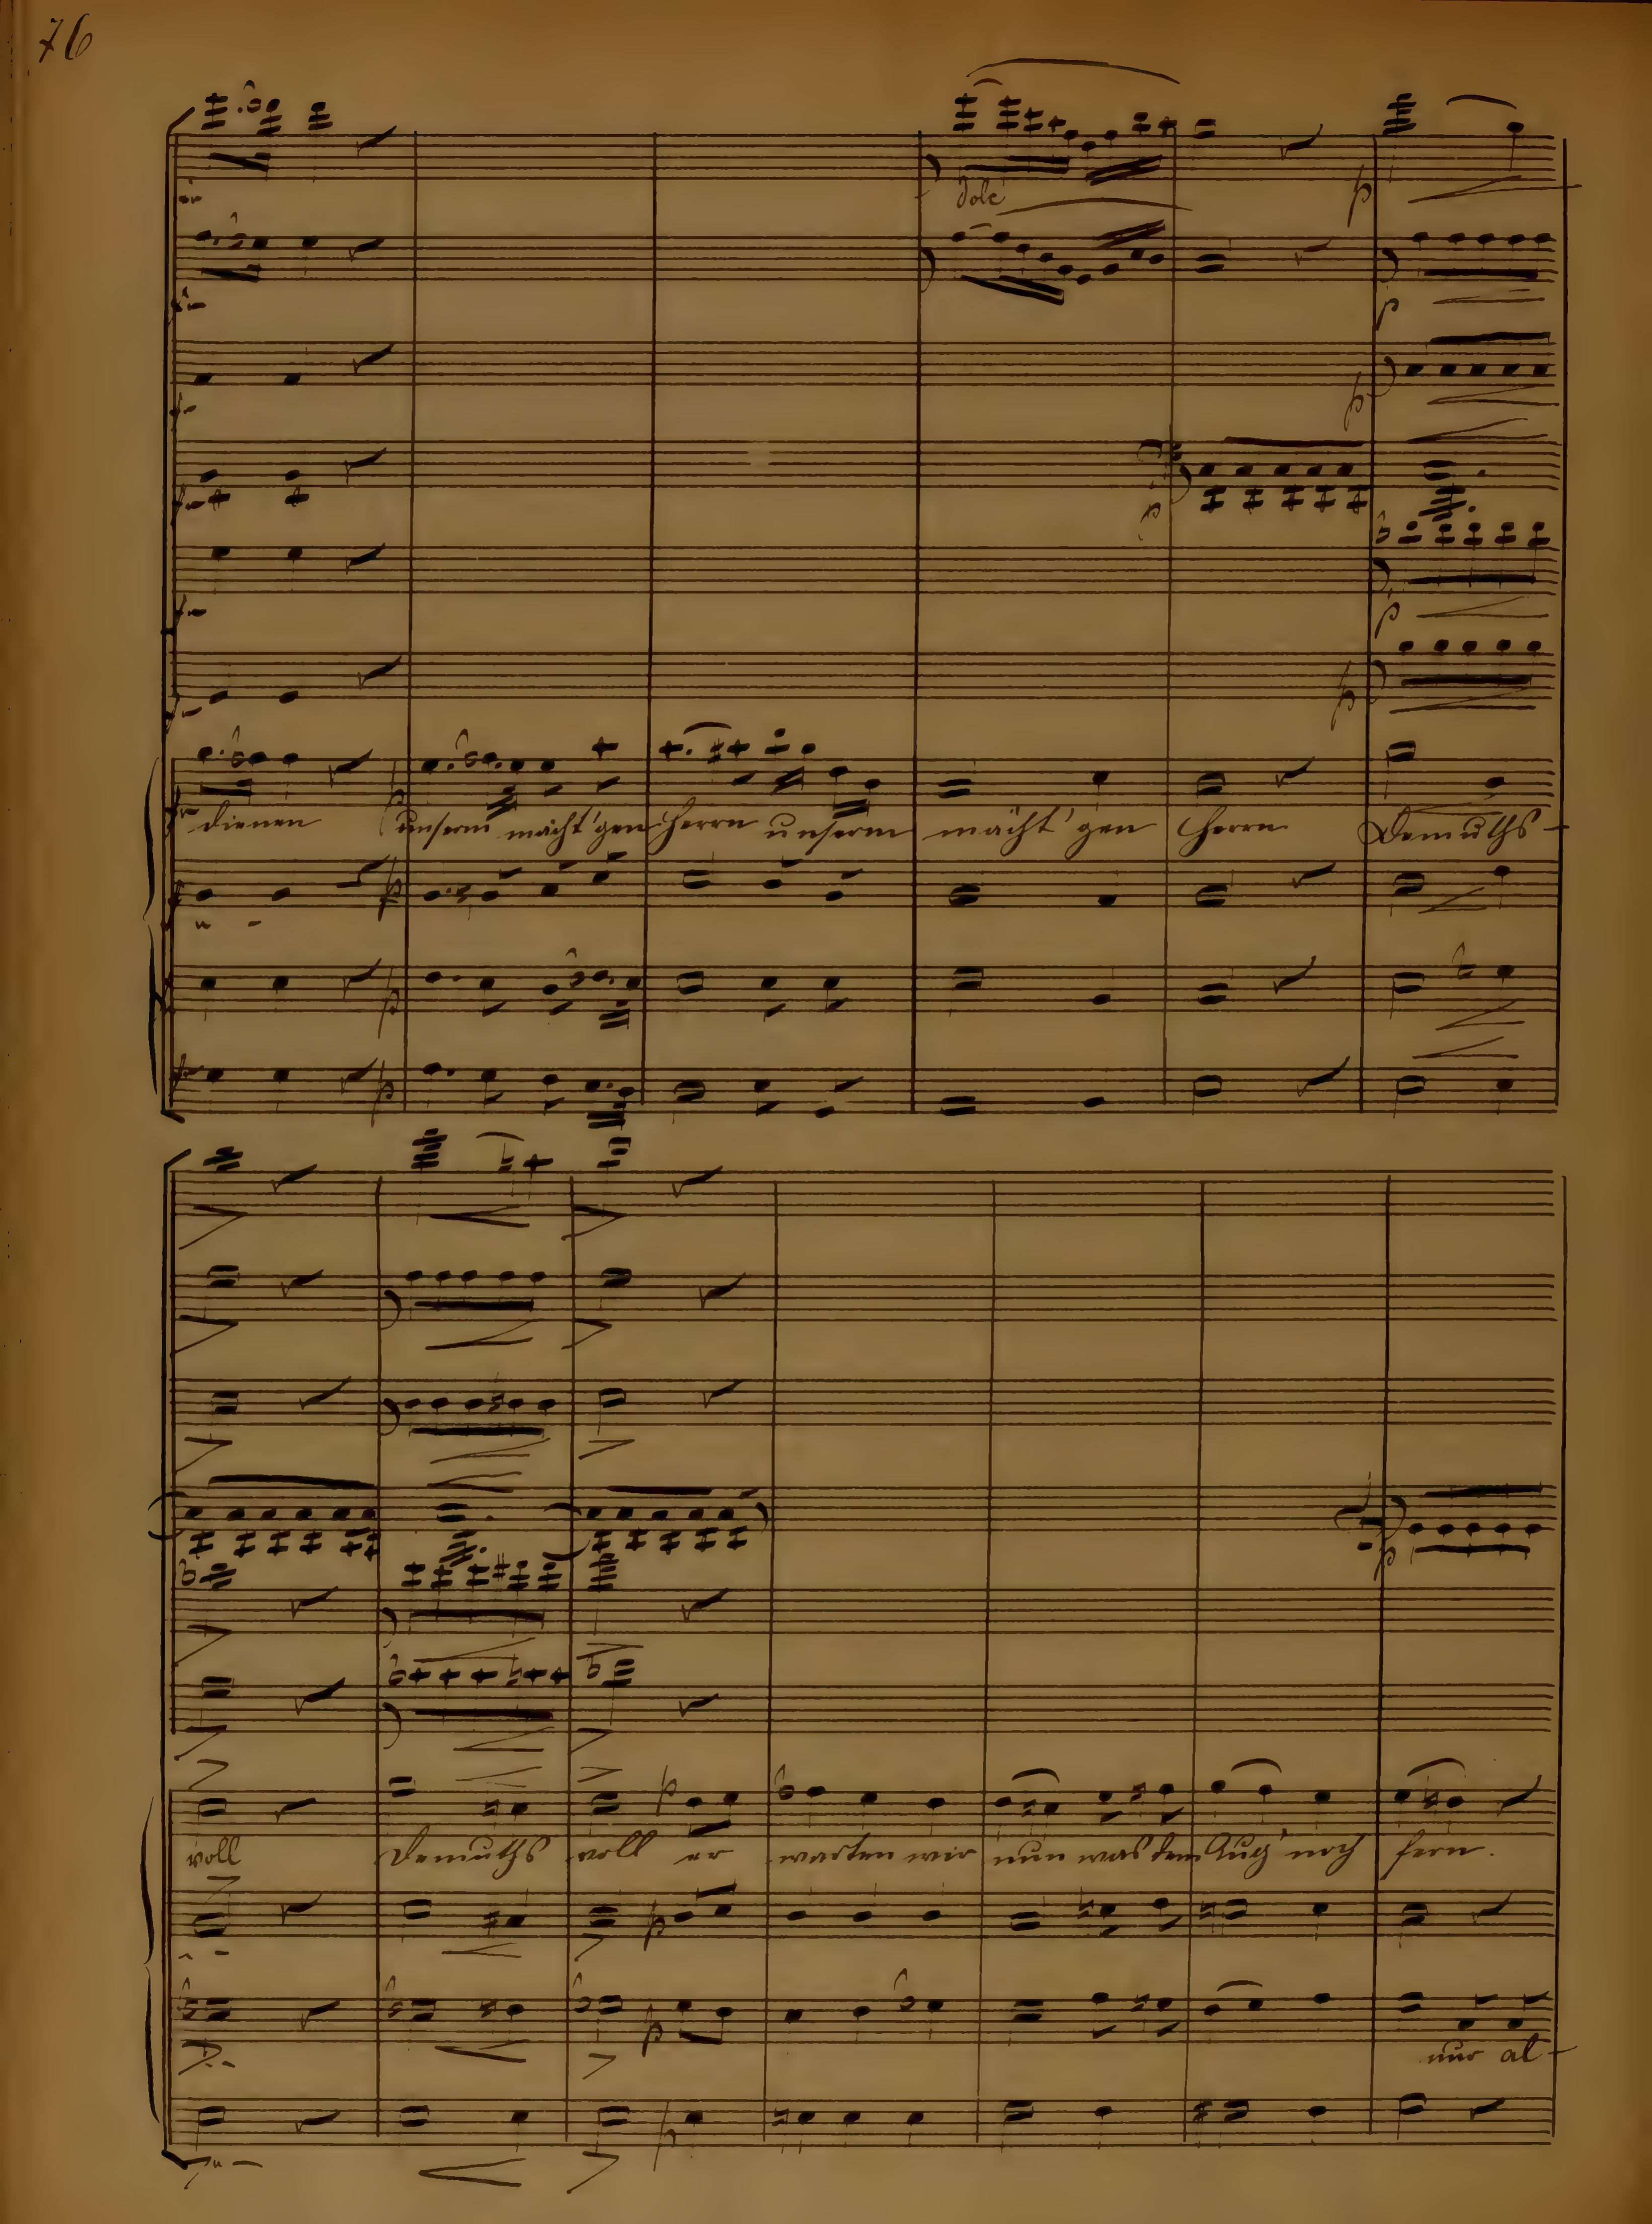 76
dolc
p
p
p
p
p
p
dienen unserm mächt'gen Herrn unserm mächt'gen Herrn Demuths-
p
p
p
p
voll Demuths voll er warten wir nun was dem Aug' noch fern.
p
p
p
nur al-
p